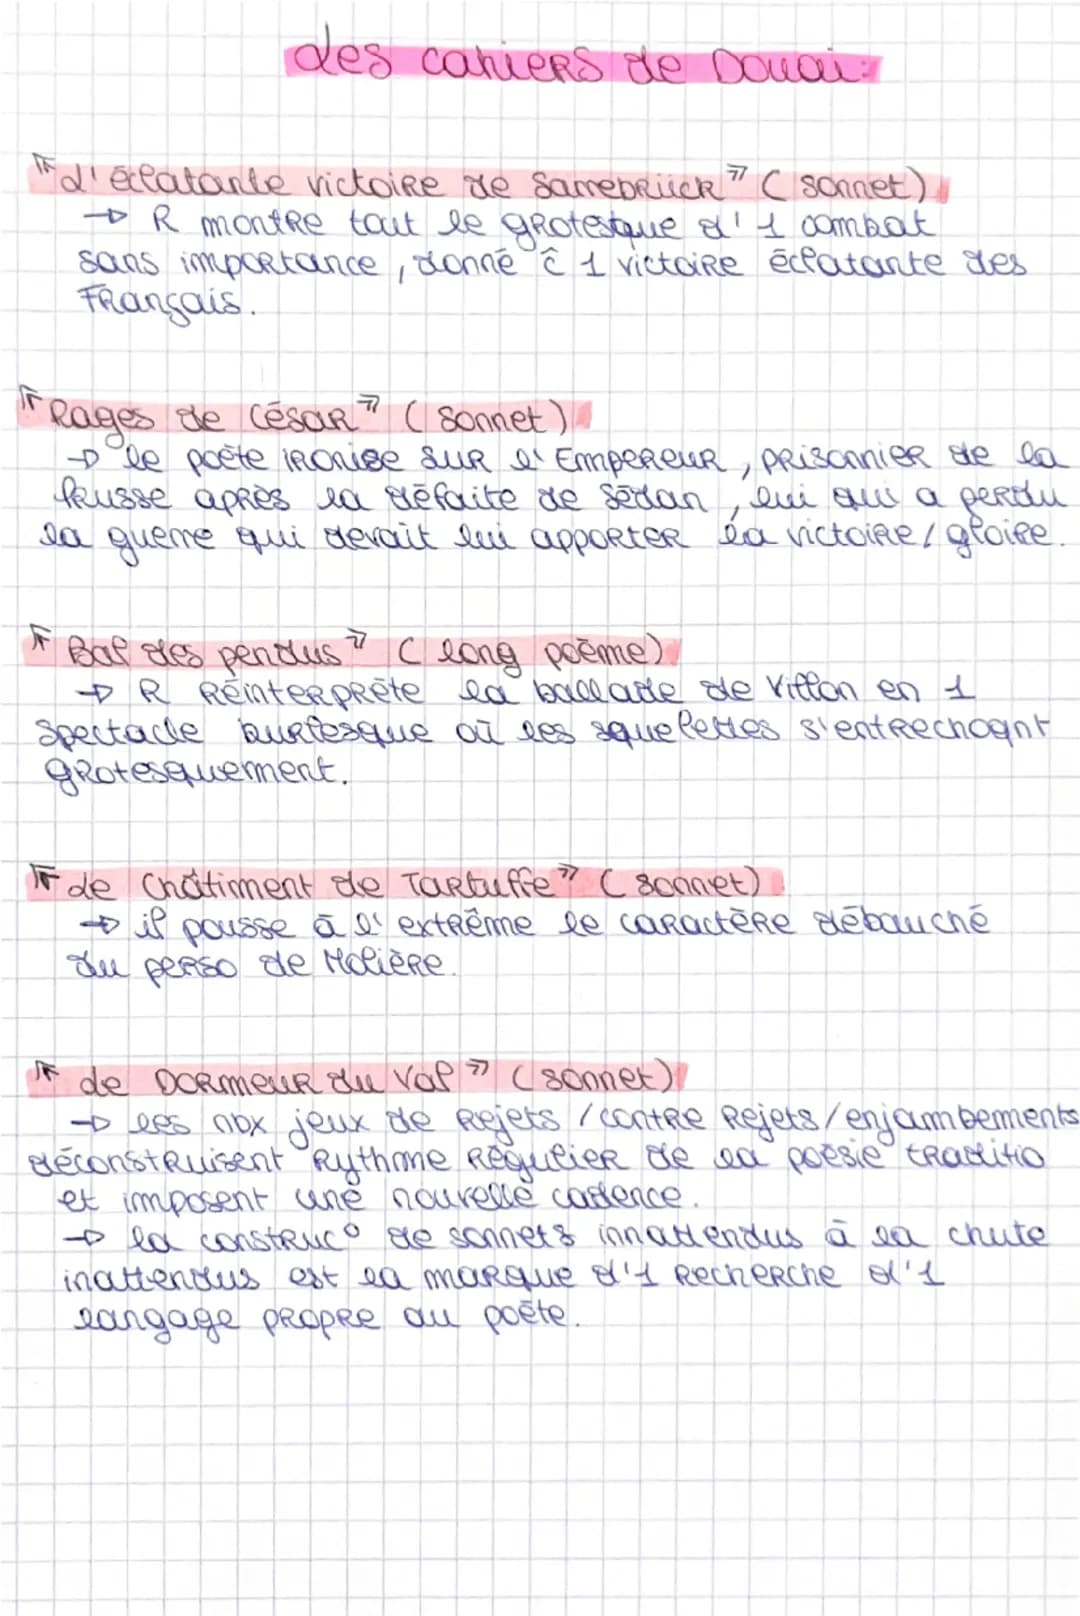 Les cahiers de Douai:
"L'éclatante victoire de Sarrebrück" (sonnet)
→ R montre tout le grotesque d'1 combat
sans importance, donné ĉ 1 victoire éclatante des
Français.
"Rages de César" (sonnet)
→ le poète ironise sur l'Empereur, prisonnier de la
Prusse après la défaite de Sedan, lui qui a perdu
la guerre qui devait lui apporter la victoire/gloire.
"Bal des pendus" (long poème)
→ R réinterprète la ballade de Villon en 1
spectacle burlesque où les squelettes s'entrechoqnt
grotesquement.
"Le Châtiment de Tartuffe" (sonnet)
→ il pousse à l'extrême le caractère débauché
du perso de Molière.
"Le Dormeur du Val" (sonnet)
→ les nbx jeux de rejets/contre rejets/enjambements
déconstruisent rythme régulier de la poésie traditio
et imposent une nouvelle cadence.
→ la construc° de sonnets innattendus à la chute
inattendus est la marque d'1 recherche d'1
langage propre au poète.